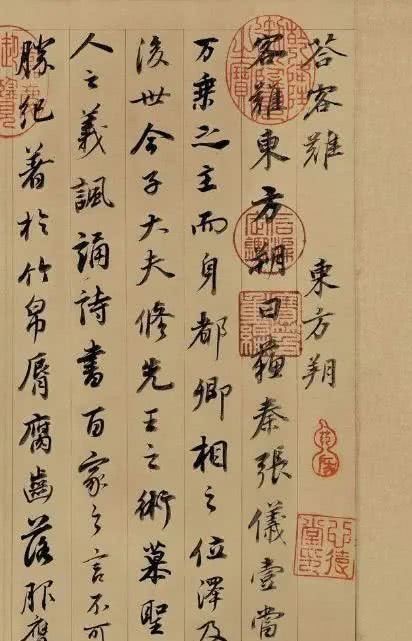 荅客難 東方朔
客難東方朔曰蘇秦張儀壹當
万乘之主而身都卿相之位澤及
後世今子大夫脩先王之術慕聖
人之義諷誦詩書百家之言不可
勝紀著於竹帛脣腐齒落服膺